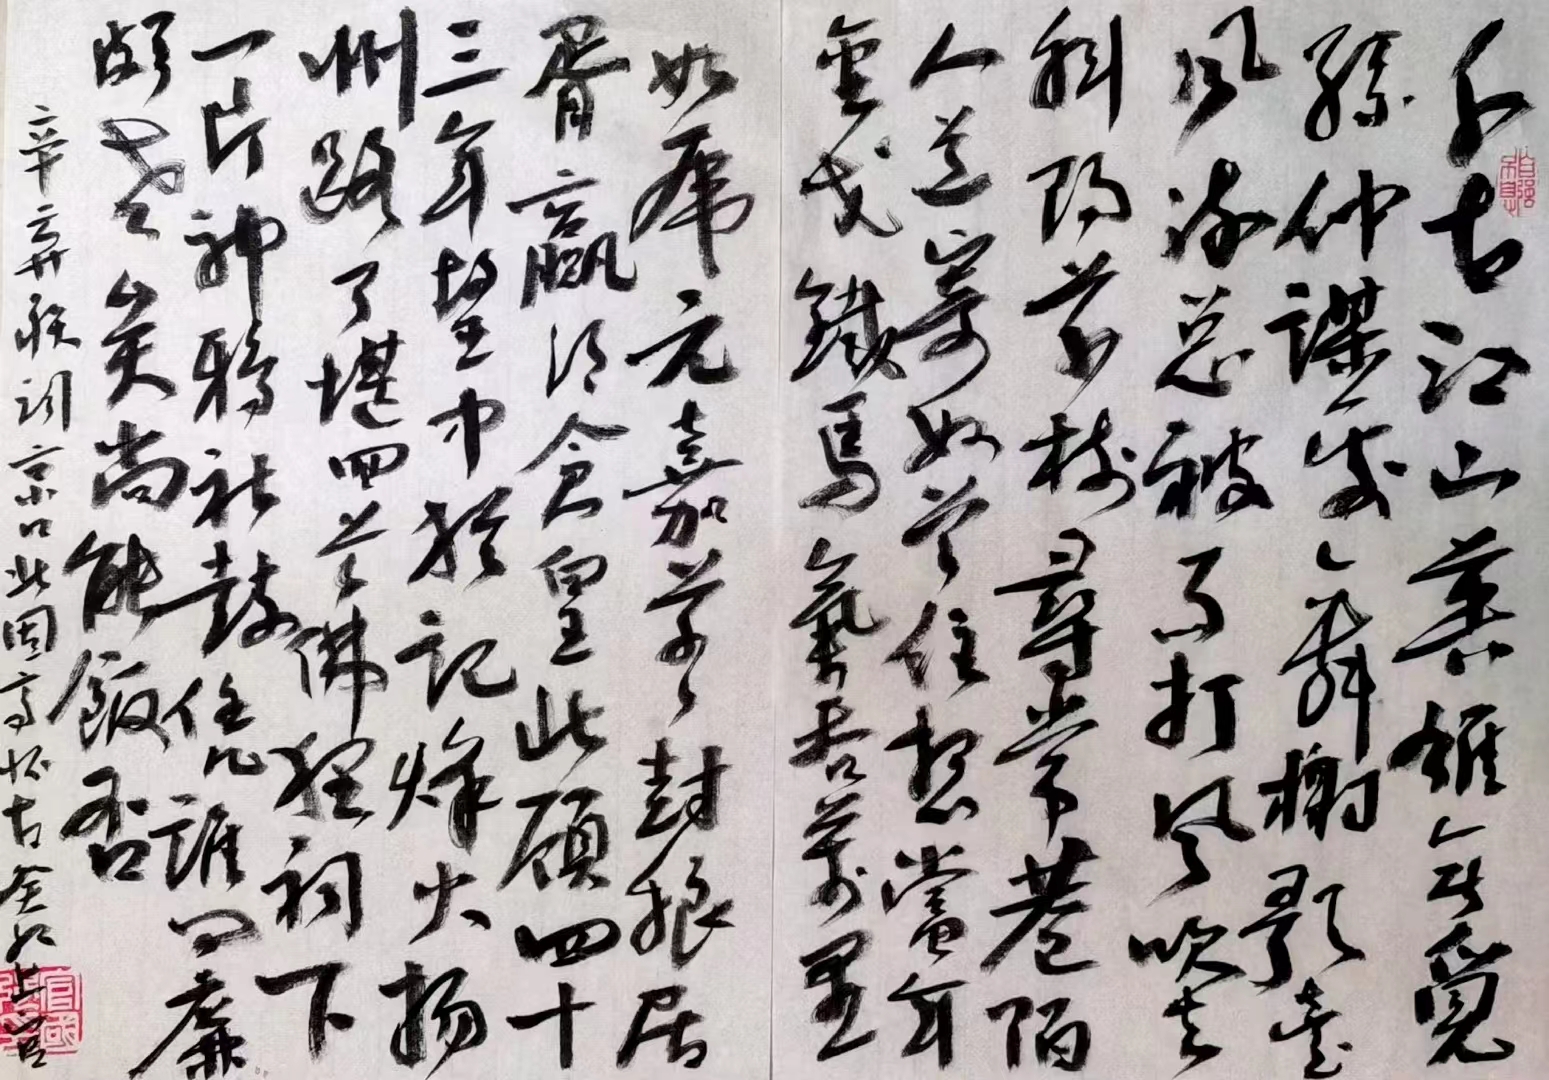 千古江山英雄无覓
孫仲謀處舞榭歌臺
風流總被雨打風吹去
斜陽草樹尋常巷陌
人道寄奴曾住想當年
金戈鐵馬氣吞萬里
如虎元嘉草草封狼居
胥贏得倉皇北顧四十
三年望中猶記烽火揚
州路可堪回首佛狸祠下
一片神鴉社鼓凭誰問廉
頗老矣尚能飯否
辛弃疾詞京口北固亭怀古上官